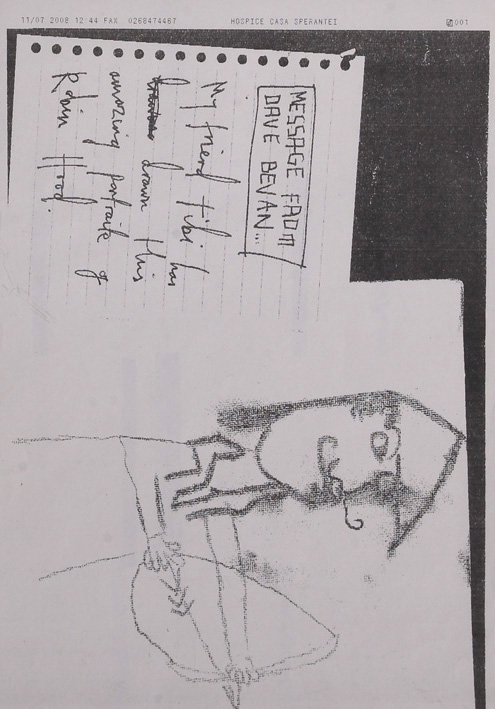 11/07 2008 12:44 FAX 0268474467 HOSPICE CASA SPERANTEI 001
MESSAGE FROM
DAVE BEVAN...
My friend Tibi has
drawn this
amazing portrait of
Robin Hood.